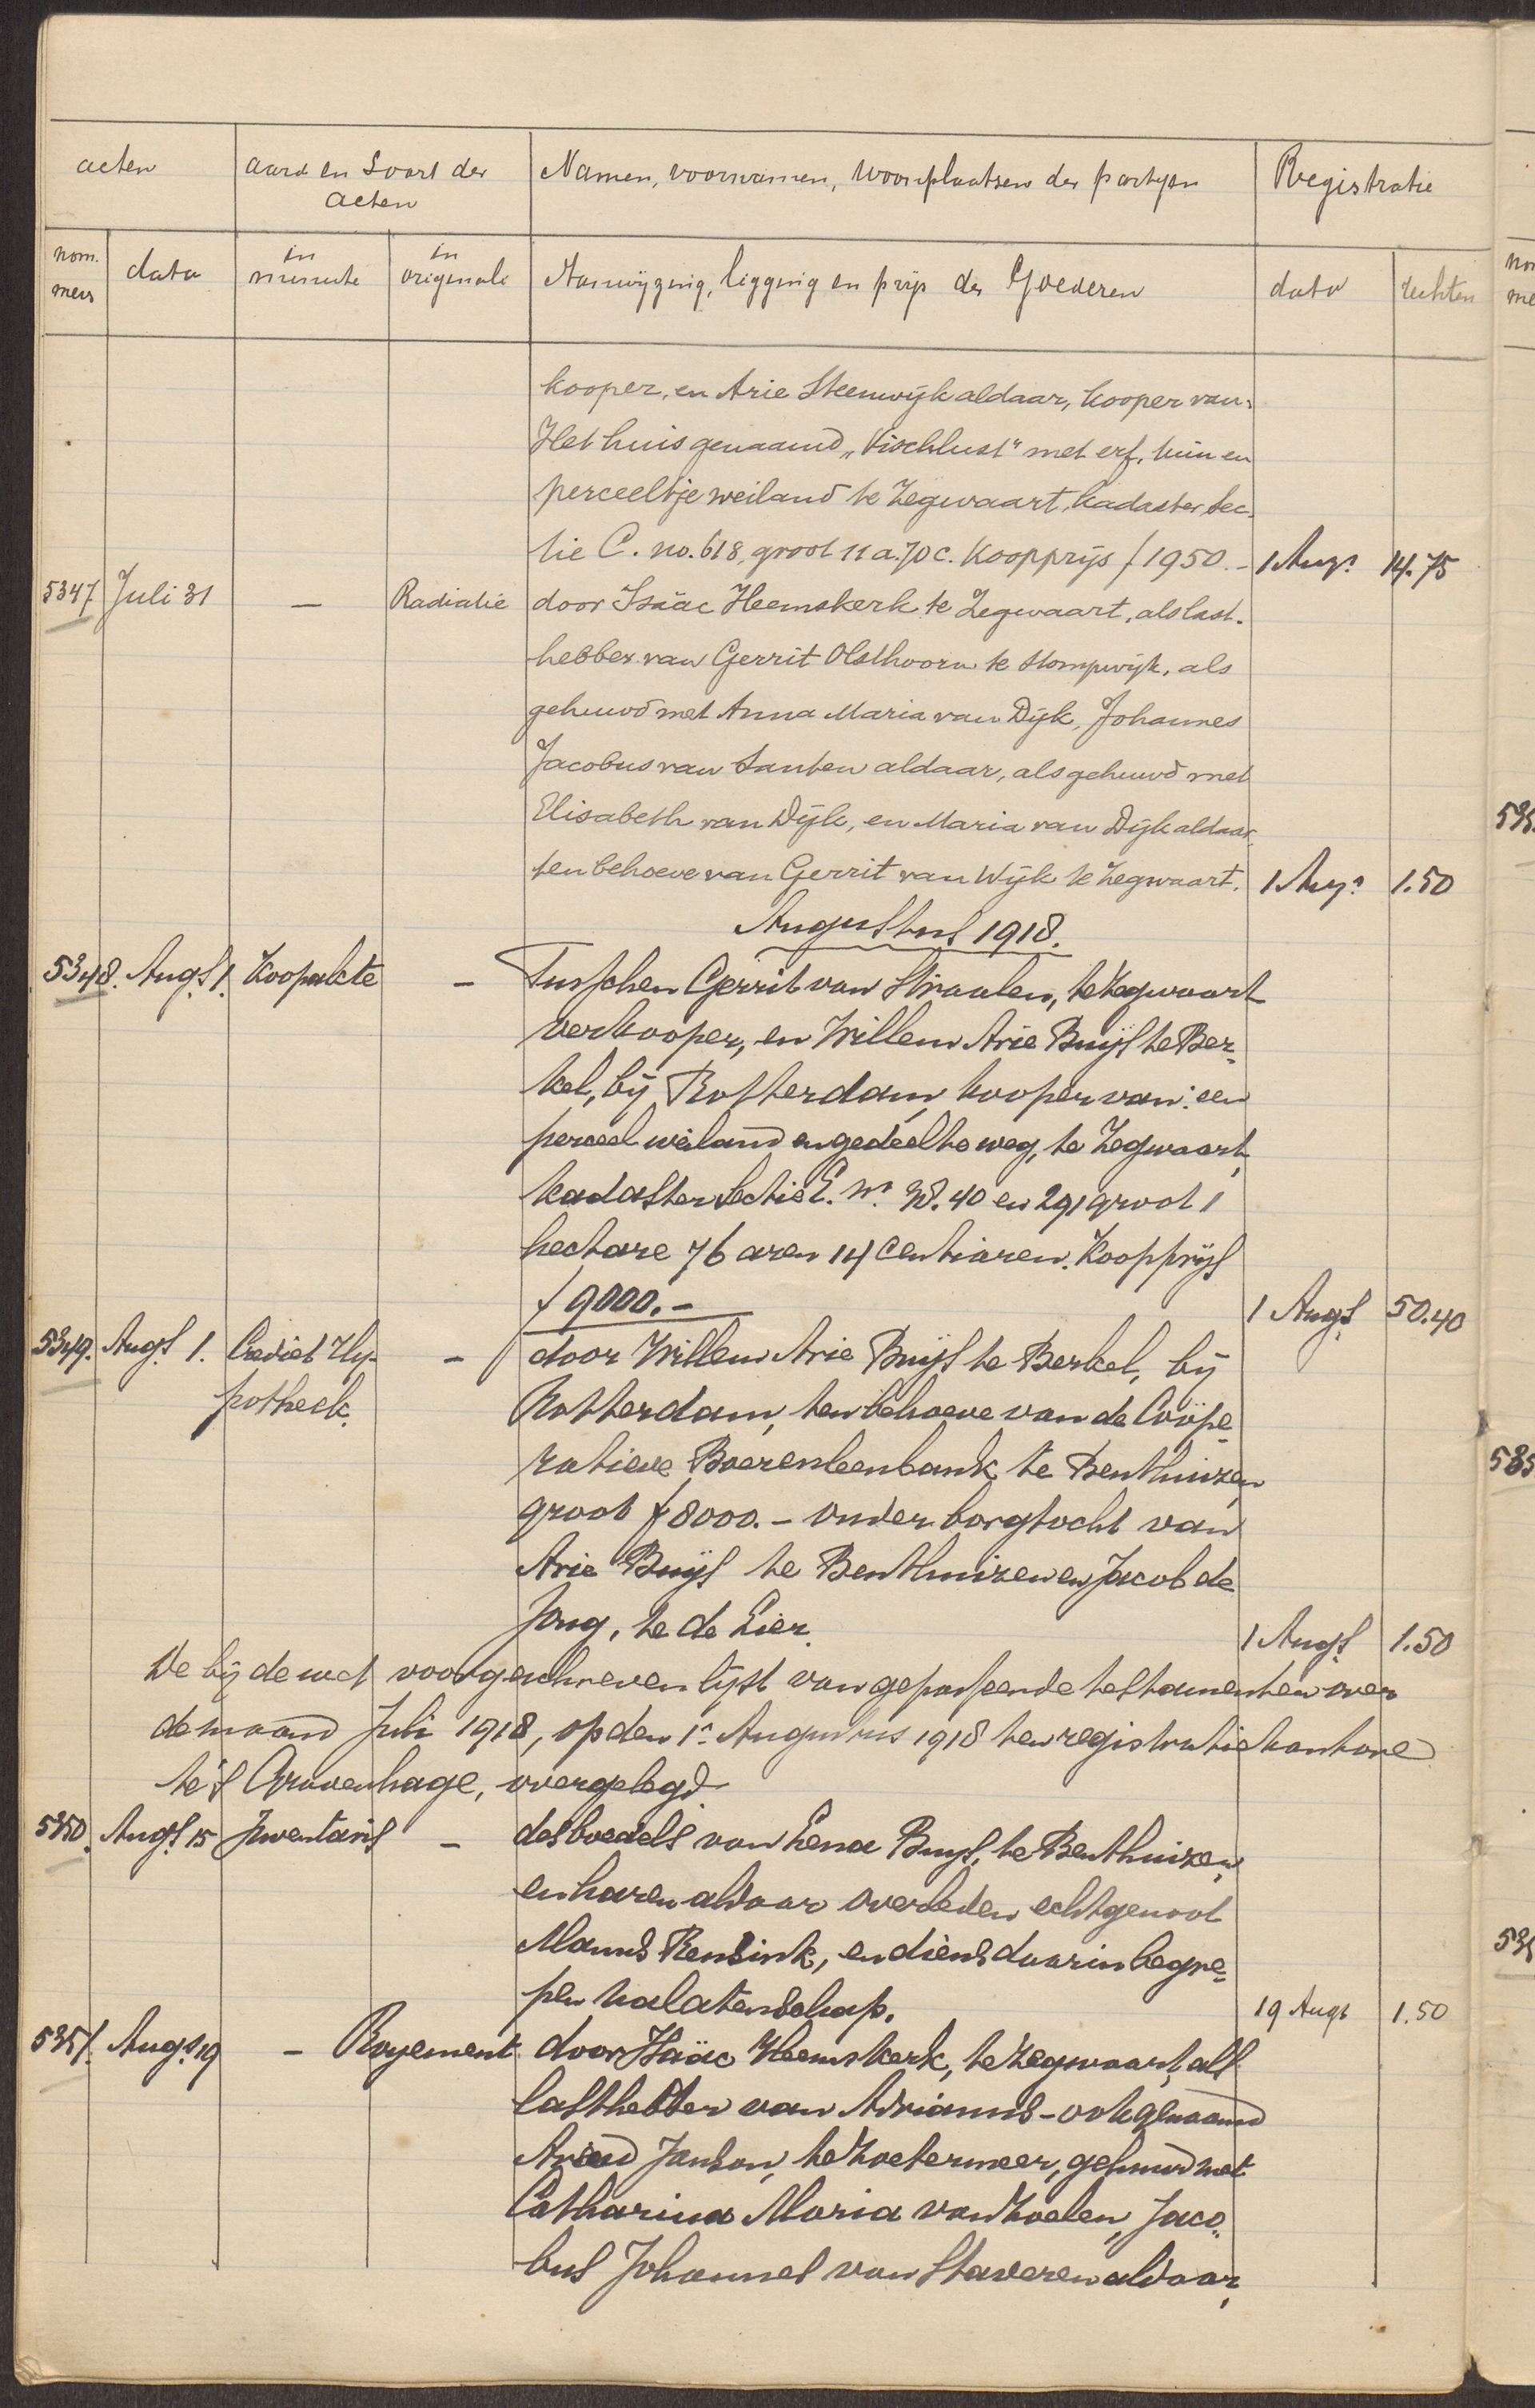 acten aard en Soort der Namen, voornamen, woonplaatsen der partyen Registratie
acten
nom. data in in Aanwyzing, ligging en prijs der Goederen data rechten
mers minute originale
kooper, en Arie Steenwijk aldaar, kooper van:
Het huis genaamd „Vischlust" met erf, tuin en
perceeltje weiland te Zegwaart, kadaster sec-
tie C. no. 618, groot 11 a. 70 c. Koopprijs f 1950.- 1 Aug. 14.75
5347 Juli 31 - Radiatie door Isaäc Heemskerk te Zegwaart, als last-
hebber van Gerrit Olsthoorn te Stompwijk, als
gehuwd met Anna Maria van Dijk, Johannes
Jacobus van Santen aldaar, als gehuwd met
Elisabeth van Dijk, en Maria van Dijk aldaar,
ten behoeve van Gerrit van Wijk te Zegwaart. 1 Aug. 1.50
Augustus 1918.
5348. Augs. 1. Koopakte - Tusschen Gerrit van Straalen, te Zegwaart
verkooper, en Willem Arie Buijs te Ber-
kel, bij Rotterdam, kooper van: een
perceel weiland en gedeelte weg, te Zegwaart,
kadaster Sectie E. Nr. 40 en 291 groot 1
hectare 76 aren 14 centiaren. Koopprijs
f 9000.- 1 Augs. 50.40
5349. Augs. 1. Crediet Hy- - door Willem Arie Buijs te Berkel, bij
potheek. Rotterdam, ten behoeve van de Coöpe-
ratieve Boerenleenbank te Benthuizen,
groot f 8000.- onder borgtocht van
Arie Buijs te Benthuizen en Jacob de
Jong, te de Lier. 1 Augs. 1.50
De bij de wet voorgeschreven lijst van gepasseerde testamenten over
de maand Juli 1918, op den 1n Augustus 1918 ten registratie kantore
te 's Gravenhage, overgelegd.
5350. Augs. 15 Inventaris - des boedels van Lena Buijs, te Benthuizen,
en haren aldaar overleden echtgenoot
Manus Rensink, en diens daarin begre-
pen nalatenschap. 19 Augs 1.50
5351. Augs. 19 - Royement door Isaäc Heemskerk, te Zegwaart, als
lasthebber van Adrianus - ook genaamd
Arend Janson, te Zoetermeer, gehuwd met
Catharina Maria van Zoelen, Jaco-
bus Johannes van Staveren aldaar,